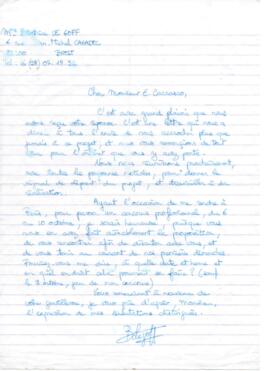 LE GOFF
Michel
BREST
Cher Monsieur E. Carrasco,
C'est avec grand plaisir que nous
avons reçu votre réponse. C'est une lettre qui nous a
à tous l'envie de nous accrocher plus que
jamais à ce projet, et nous vous remercions de tout
pour l'intérêt que vous y avez porté.
Nous nous réunirons prochainement,
avec toutes les réponses reçues, pour donner le
signal de départ du projet, et
situation.
Ayant l'occasion de me rendre à
Paris, pour passer un concours professionnel, du 6
au 10 octobre, je serais puisque vous
nous en avez fait aimablement la proposition,
de vous rencontrer afin de discuter avec vous, et
de vous tenir au courant de nos dernières démarches.
Pouvez-vous me dire, à quelle date et heure et
en quel endroit cela pourrait se faire ? (sauf
le octobre, jour de mon concours)
Vous remerciant à nouveau de
votre gentillesse, je vous prie d'agréer, Monsieur,
l'expression de mes salutations distinguées.